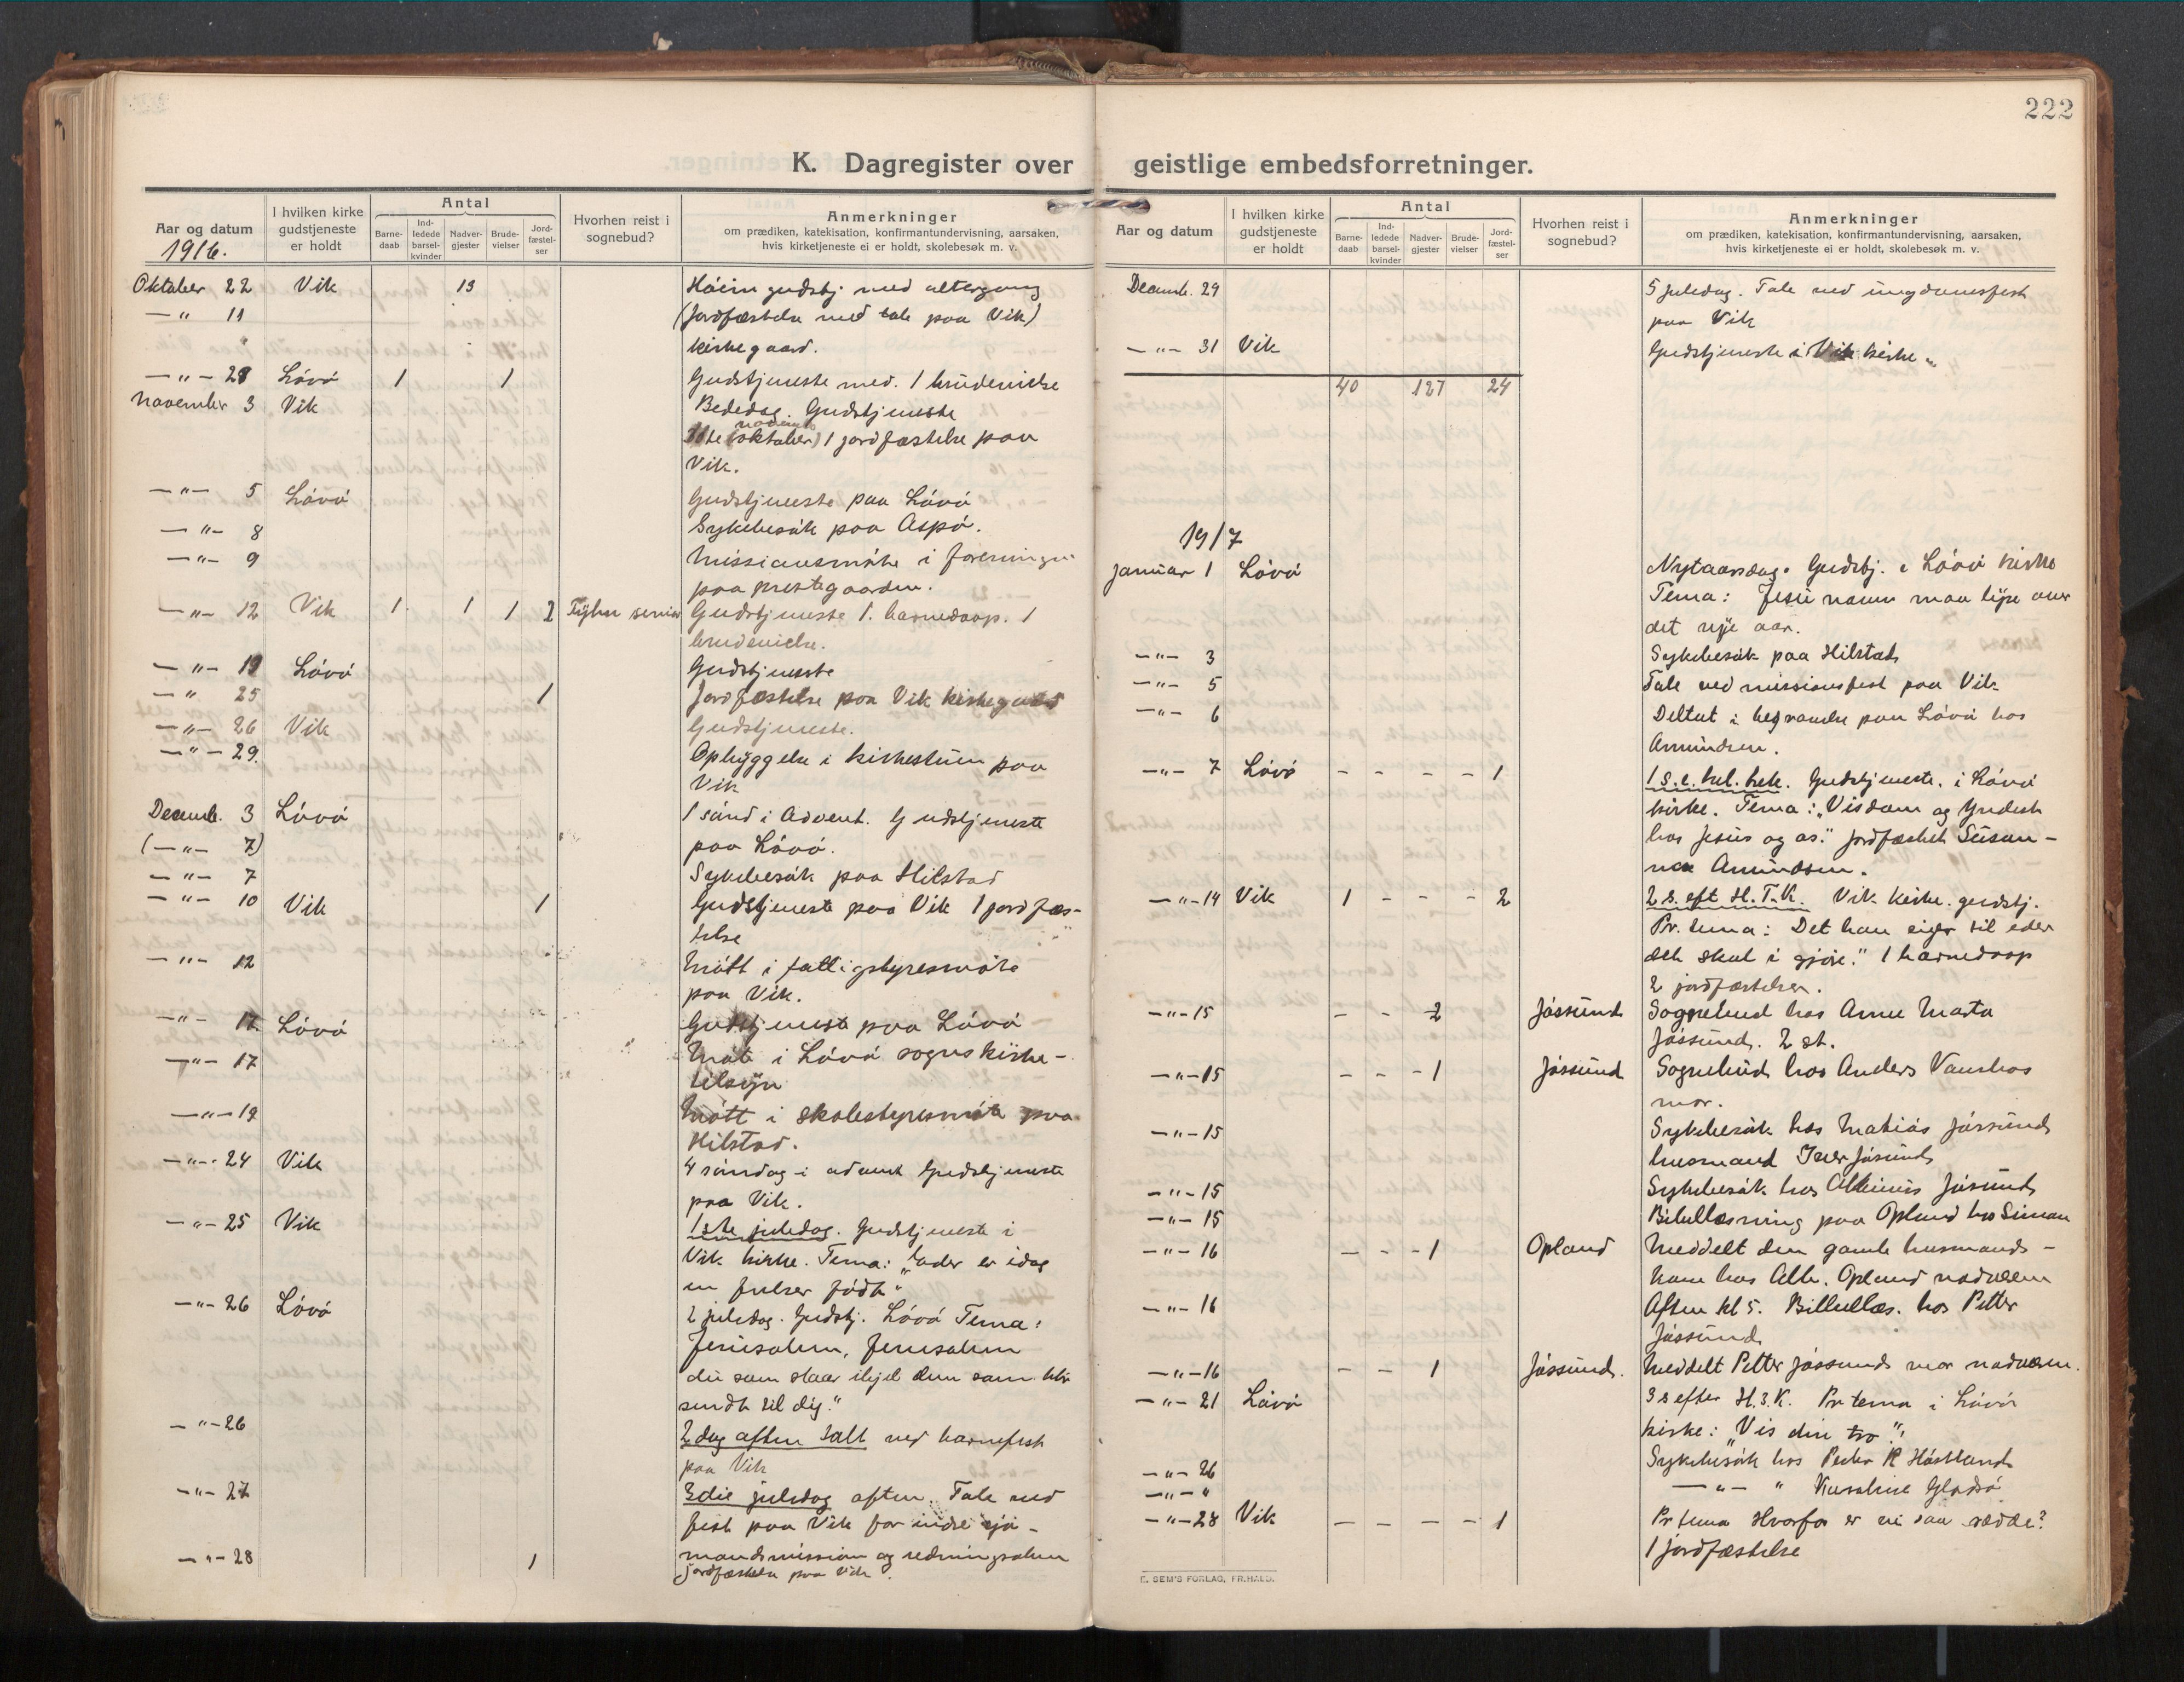 222
K. Dagregister over geistlige embedsforretninger.
Aar og datum
1916.
I hvilken kirke gudstjeneste er holdt
Antal
Barne-daab
Ind-ledede barsel-kvinder
Nadver-gjester
Brude-vielser
Jord-fæstel-ser
Hvorhen reist i sognebud?
Anmerkninger
om prædiken, katekisation, konfirmantundervisning, aarsaken,
hvis kirketjeneste ei er holdt, skolebesøk m. v.
Oktober 22 Vik 13 gudstj med altergang
— " 11 (Jordfæstelse med tale paa Vik)
kirkegaard.
— " — 28 Lövö 1 1 Gudstjeneste med. 1 brudevielse
November 3 Vik Bededag. Gudstjeneste
novemb
(oktober) 1 jordfæstelse paa
Vik.
— " — 5 Lövö Gudstjeneste paa Lövö
— " — 8 Sykebesök paa Aspö.
— " — 9 Missionsmöte i foreningen
paa prestegaarden.
— " — 12 Vik 1 1 1 2 Gudstjeneste 1. barnedaap. 1
brudevielse.
— " — 19 Lövö Gudstjeneste
— " 25 1 Jordfæstelse paa Vik kirkegaard
— " — 26 Vik Gudstjeneste.
— " — 29. Opbyggelse i kirkestuen paa
Vik
Decemb. 3 Lövö 1 sönd i Advent. Gudstjeneste
(— " — 7) paa Lövö.
— " — 7 Sykebesök paa Hilstad
— " — 10 Vik 1 Gudstjeneste paa Vik 1 jordfæs-
telse
— " — 12 Mött i fattigstyresmöte
paa Vik.
— " — 17. Lövö Gudstjeneste paa Lövö
— " — 17 Möte i Lövö sogns kirke-
tilsyn
— " — 19 Mött i skolestyresmöte paa
Hilstad.
— " — 24 Vik 4 söndag i advent Gudstjeneste
paa Vik.
— " — 25 Vik 1ste juledag. Gudstjeneste i
Vik kirke. Tema: "Eder er idag
en frelser födt"
— " — 26 Lövö 2 juledag. Gudstj. Lövö Tema:
Jerusalem, Jerusalem
du som slaar ihjel dem som blir
sendt til dig."
— " — 26 2 dag aften talt ved barnefest
paa Vik
— " — 27 3die juledag aften. Tale ved
fest paa Vik for indre sjö-
— " — 28 1 mandsmission og redningssaken
jordfæstelse paa Vik.
Aar og datum
I hvilken kirke gudstjeneste er holdt
Antal
Barne-daab
Ind-ledede barsel-kvinder
Nadver-gjester
Brude-vielser
Jord-fæstel-ser
Hvorhen reist i sognebud?
Anmerkninger
om prædiken, katekisation, konfirmantundervisning, aarsaken,
hvis kirketjeneste ei er holdt, skolebesøk m. v.
Decemb. 29 5 juledag. Tale ved ungdomsfest
paa Vik
— " — 31 Vik Gudstjeneste i Vik kirke
40 127 24
1917
Januar 1 Lövö Nytaarsdag. Gudstj. i Lövö kirke
Tema: Jesu navn maa lyse over
det nye aar.
— " — 3 Sykebesök paa Hilstad
— " — 5 Tale ved missionsfest paa Vik
— " — 6 Deltat i begravelse paa Lövö hos
Amundsen.
— " — 7 Lövö - - - - 1 1 s. e. hel. trek. Gudstjeneste. i Lövö
kirke. Tema: "Visdom og Yndest
hos Jesus og os." Jordfæstet Susan-
na Amundsen.
— " — 14 Vik 1 - - - 2 2 s. eft H. T. K. Vik kirke. gudstj.
Pr. tema: Det han siger til eder
det skal i gjöre." 1 barnedaap
2 jordfæstelser.
— " — 15 - - 2 Jössund Sognebud hos Anne Marta
Jössund. 2 st.
— " — 15 - - - 1 Jössund Sognebud hos Anders
mor.
— " — 15 Sykebesök hos Matias Jössund
husmand Iver Jösund
— " — 15 Sykebesök hos Jösund
— " — 15 Bibellæsning paa Opland hos Simon
— " — 16 - - - 1 Opland Meddelt den gamle husmands-
kone hos Alb. Opland nadveren
— " — 16 Aften kl 5. Bibellæs. hos Petter
Jössund
— " — 16 - - 1 Jössund. Meddelt Petter Jössunds mor nadveren.
— " — 21 Lövö 3 s efter H. 3. K. Pr tema i Lövö
kirke: "Vis din tro".
— " — 26 Sykebesök hos Peder
— " — " — " — "
— " — 28 Vik - - - - 1 Pr tema Hvorfor er vi saa rædde?
1 jordfæstelse
E. SEM'S FORLAG, FR.HALD.